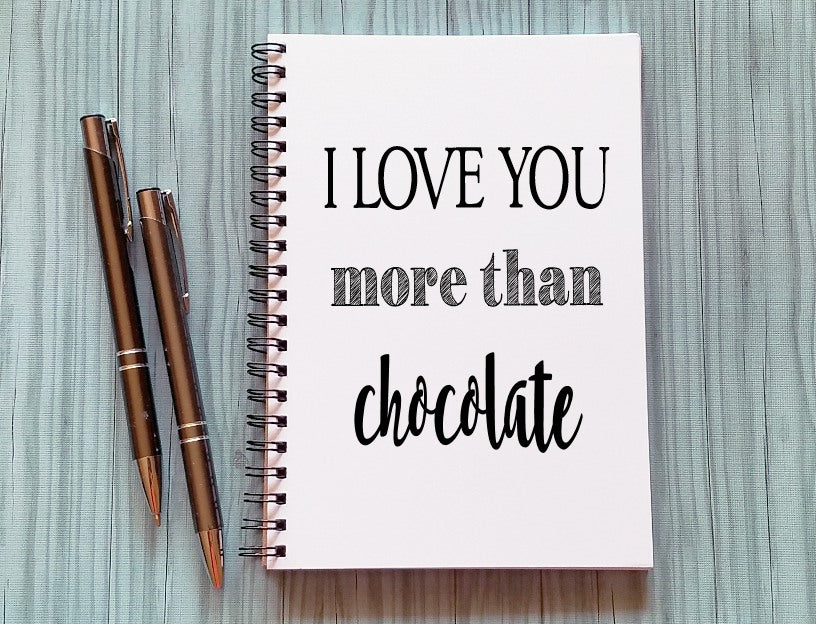 I LOVE YOU
more than
chocolate